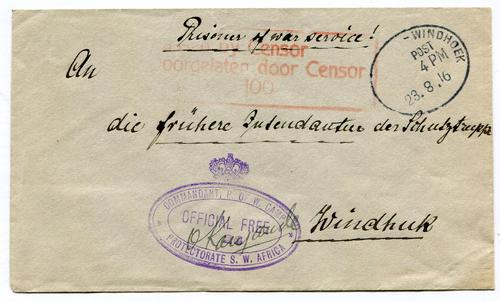 Prisoner of war service!
by Censor
oorgelaten door Censor
100
WINDHOEK
POST
4 PM
23.8.16
An
die frühere Intendantur der Schutztruppe
COMMANDANT, P. OF W. CAMP
OFFICIAL FREE
PROTECTORATE S. W. AFRICA
Windhuk